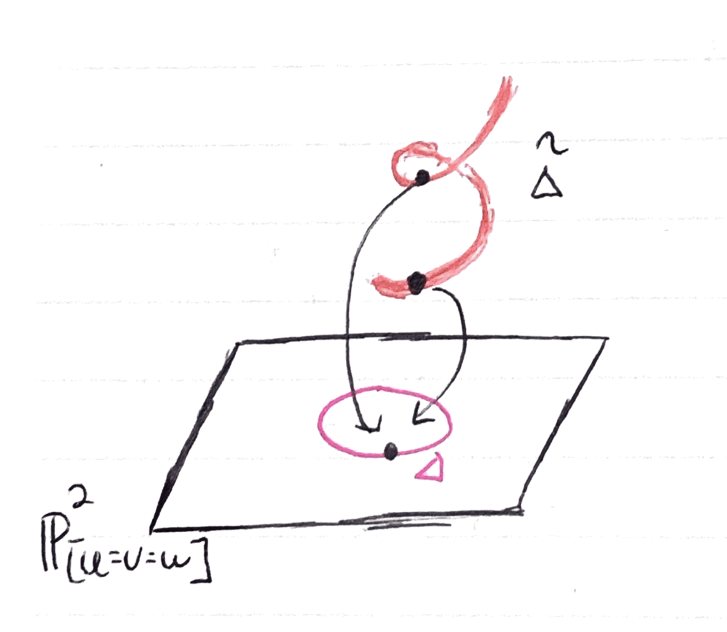 ~
Δ
Δ
P²[u=v=w]